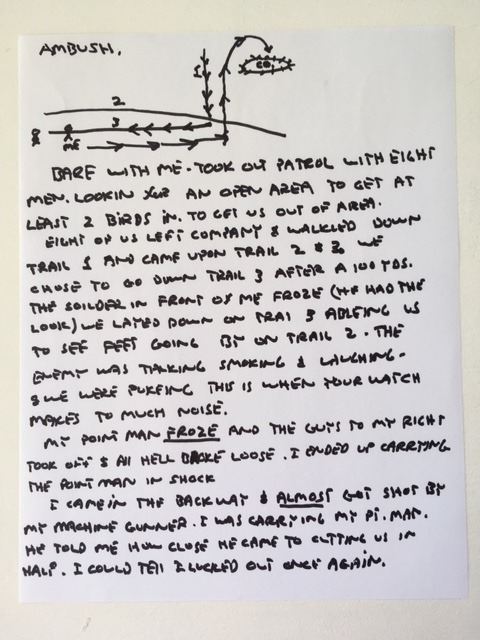 AMBUSH.
1
CO.
2
3
ME
BARE WITH ME. TOOK OUT PATROL WITH EIGHT
MEN. LOOKIN FOR AN OPEN AREA TO GET AT
LEAST 2 BIRDS IN. TO GET US OUT OF AREA.
EIGHT OF US LEFT COMPANY & WALKED DOWN
TRAIL 1 AND CAME UPON TRAIL 2 & 3. WE
CHOSE TO GO DOWN TRAIL 3 AFTER A 100 YDS.
THE SOILDER IN FRONT OF ME FROZE (HE HAD THE
LOOK) WE LAYED DOWN ON TRAI 3 ABLEING US
TO SEE FEET GOING BY ON TRAIL 2. THE
ENEMY WAS TALKING SMOKING & LAUGHING.
& WE WERE PUKEING THIS IS WHEN YOUR WATCH
MAKES TO MUCH NOISE.
MY POINT MAN FROZE AND THE GUYS TO MY RIGHT
TOOK OFF & All HELL BROKE LOOSE. I ENDED UP CARRYING
THE POINT MAN IN SHOCK
I CAME IN THE BACK WAY & ALMOST GOT SHOT BY
MY MACHINE GUNNER. I WAS CARRYING MY PT. MAN.
HE TOLD ME HOW CLOSE HE CAME TO CUTTING US IN
HALF. I COULD TELL I LUCKED OUT ONCE AGAIN.